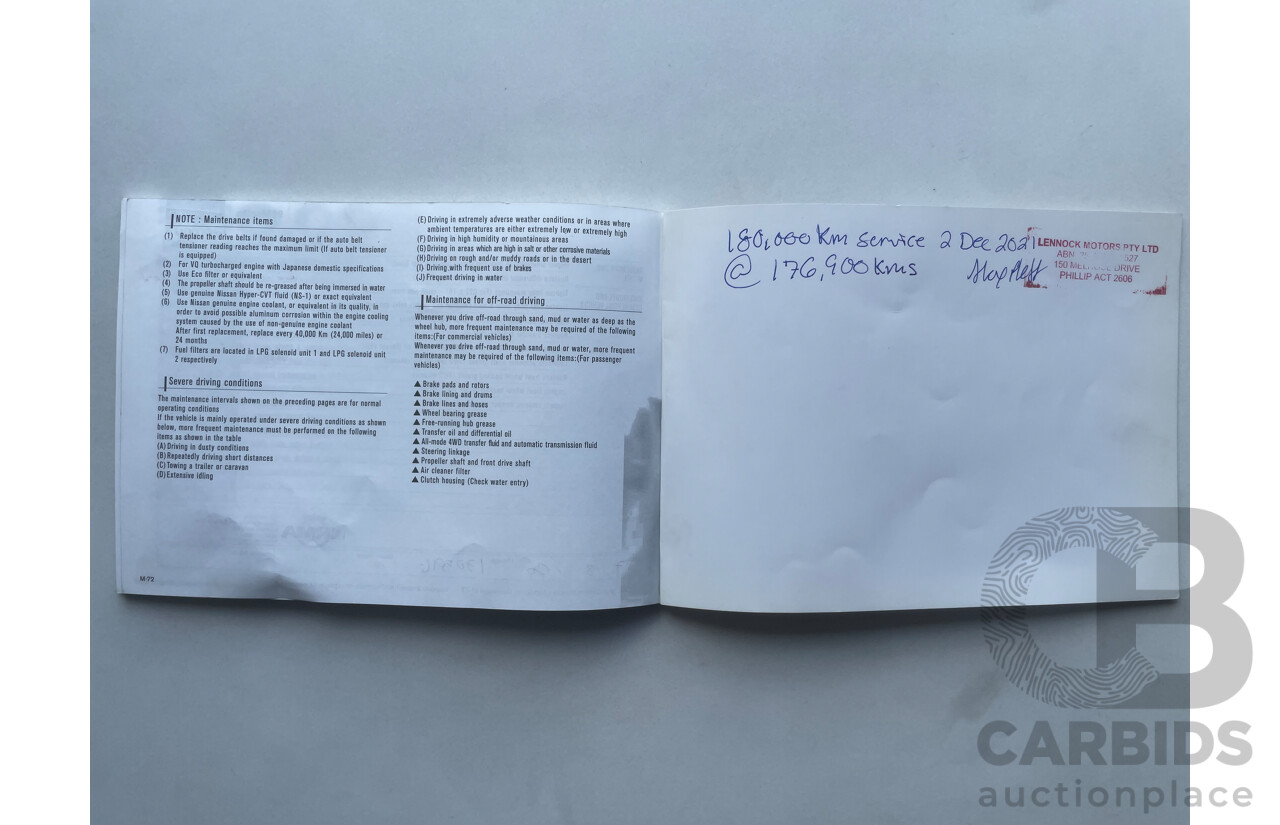 NOTE : Maintenance items
(1) Replace the drive belts if found damaged or if the auto belt
tensioner reading reaches the maximum limit (If auto belt tensioner
is equipped)
(2) For VQ turbocharged engine with Japanese domestic specifications
(3) Use Eco filter or equivalent
(4) The propeller shaft should be re-greased after being immersed in water
(5) Use genuine Nissan Hyper-CVT fluid (NS-1) or exact equivalent
(6) Use Nissan genuine engine coolant, or equivalent in its quality, in
order to avoid possible aluminum corrosion within the engine cooling
system caused by the use of non-genuine engine coolant
After first replacement, replace every 40,000 Km (24,000 miles) or
24 months
(7) Fuel filters are located in LPG solenoid unit 1 and LPG solenoid unit
2 respectively
Severe driving conditions
The maintenance intervals shown on the preceding pages are for normal
operating conditions
If the vehicle is mainly operated under severe driving conditions as shown
below, more frequent maintenance must be performed on the following
items as shown in the table
(A) Driving in dusty conditions
(B) Repeatedly driving short distances
(C) Towing a trailer or caravan
(D) Extensive idling
M-73
(E) Driving in extremely adverse weather conditions or in areas where
ambient temperatures are either extremely low or extremely high
(F) Driving in high humidity or mountainous areas
(G) Driving in areas which are high in salt or other corrosive materials
(H) Driving on rough and/or muddy roads or in the desert
(I) Driving with frequent use of brakes
(J) Frequent driving in water
Maintenance for off-road driving
Whenever you drive off-road through sand, mud or water as deep as the
wheel hub, more frequent maintenance may be required of the following
items:(For commercial vehicles)
Whenever you drive off-road through sand, mud or water, more frequent
maintenance may be required of the following items:(For passenger
vehicles)
▲ Brake pads and rotors
▲ Brake lining and drums
▲ Brake lines and hoses
▲ Wheel bearing grease
▲ Free-running hub grease
▲ Transfer oil and differential oil
▲ All-mode 4WD transfer fluid and automatic transmission fluid
▲ Steering linkage
▲ Propeller shaft and front drive shaft
▲ Air cleaner filter
▲ Clutch housing (Check water entry)
180,000 Km service 2 Dec 2021
@ 176,900 Kms
LENNOCK MOTORS PTY LTD
ABN 527
150 DRIVE
PHILLIP ACT 2606
CB
CARBIDS
auctionplace